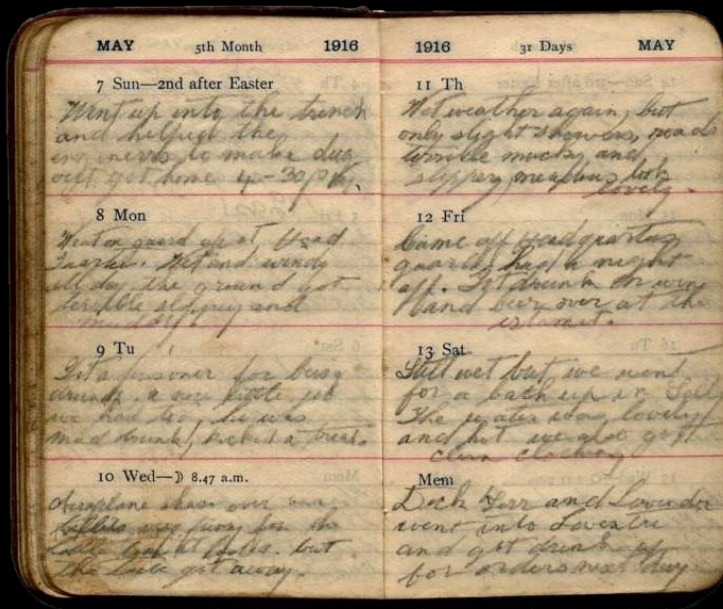 MAY 5th Month 1916
7 Sun—2nd after Easter
Went up into the trench
and helped the
engineers to make dug
out, got home 4-30 p.m.
8 Mon
Went on guard up at Head
Wet and windy
all day the ground got
terrible slippy and
muddy
9 Tu
Got a prisoner for being
drunk. a nice little job
we had too, he was
mad drunk, kicked a treat.
10 Wed—☽ 8.47 a.m.
Aeroplane over our
away for the
but
the got away.
1916 31 Days MAY
11 Th
Wet weather again, but
only slight showers, roads
terrible mucky and
slippy, meadows look
lovely.
12 Fri
Came off Headquarters
guard, had a night
off. Got drunk on wine
and beer over at the
estamet.
13 Sat
Still wet but we went
for a bath up in
The water was lovely
and hot we also got
clean clothing
Mem
Dick and
went into Laventie
and got drunk up
for orders next day